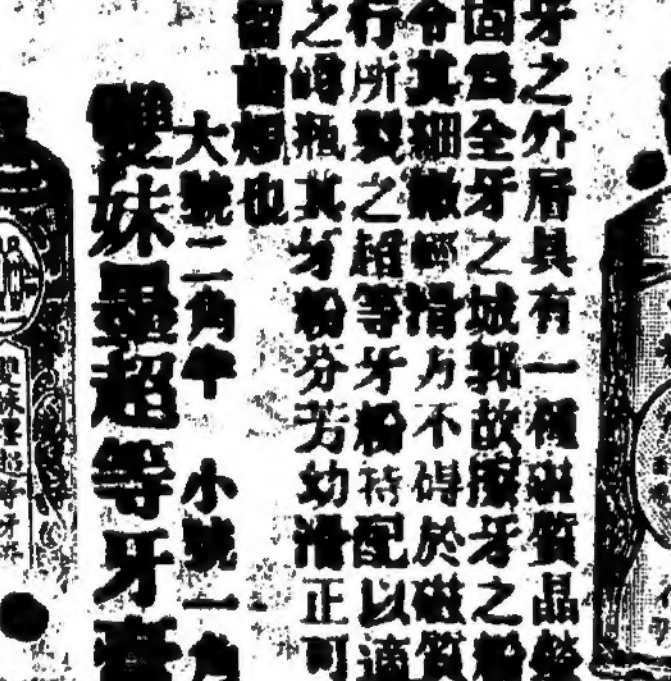 牙之外層具有一種磁質晶瑩
固爲全牙之城郭故擦牙之粉
令其細嫩輕滑方不碍於磁質
行所製之超等牙粉特配以適
之罇瓶其牙粉芬芳幼滑正可
留齒頰也
大號二角半 小號一角
雙妹墨超等牙膏
雙妹墨超等牙